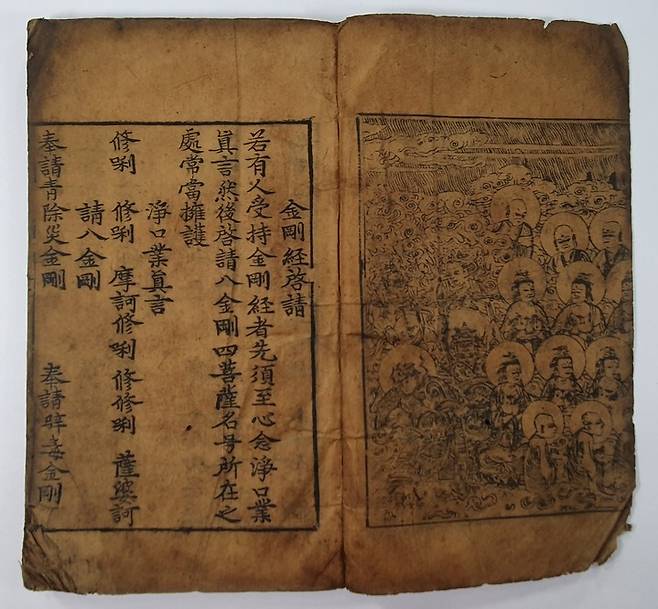 金剛經啓請
若有人受持金剛經者先須至心念淨口業
眞言然後啓請八金剛四菩薩名号所在之
處常當擁護
淨口業眞言
修唎 修唎 摩訶修唎 修修唎 薩婆訶
請八金剛
奉請青除灾金剛 奉請辟毒金剛